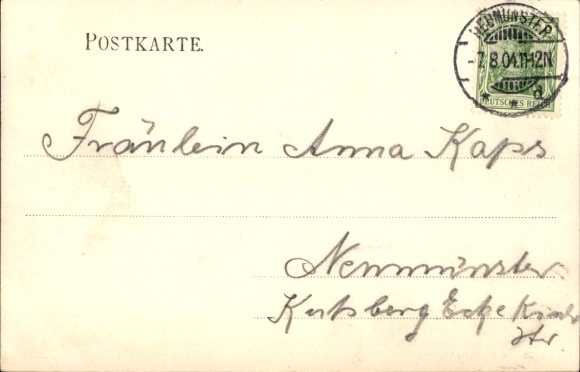 POSTKARTE.
NEUMÜNSTER
-7.8.04.11-12N.
d
DEUTSCHES REICH
Fräulein Anna Kaps
Neumünster
Ecke
str